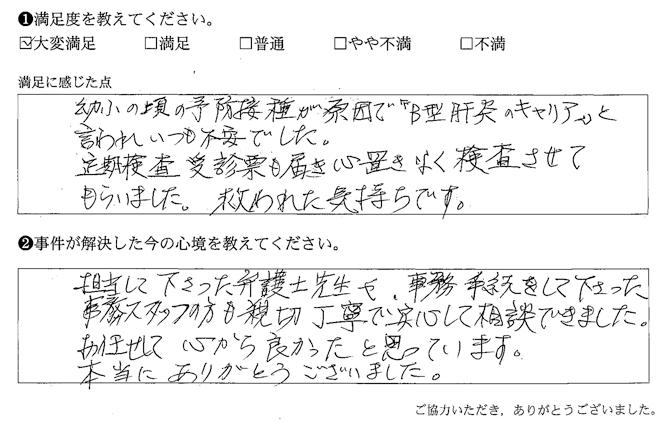 ❶満足度を教えてください。
☑大変満足 □満足 □普通 □やや不満 □不満
満足に感じた点
幼少の頃の予防接種が原因で『B型肝炎のキャリア』と
言われいつも不安でした。
定期検査受診票も届き心置きなく検査させて
もらいました。救われた気持ちです。
❷事件が解決した今の心境を教えてください。
担当して下さった弁護士先生や、事務手続をして下さった
事務スタッフの方も親切丁寧で安心して相談できました。
お任せして心から良かったと思っています。
本当にありがとうございました。
ご協力いただき，ありがとうございました。